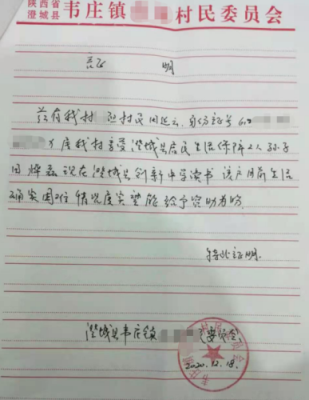 陕西省
澄城县 韦庄镇 村民委员会
证 明
兹有我村 村民 身份证号
户 属我村享受澄城县居民生活保障 人 孙子
现在澄城县创新中学读书 该户目前生活
确实困难 情况属实望能给予资助为盼
特此证明
澄城县韦庄镇 委员会
2020.12.18.